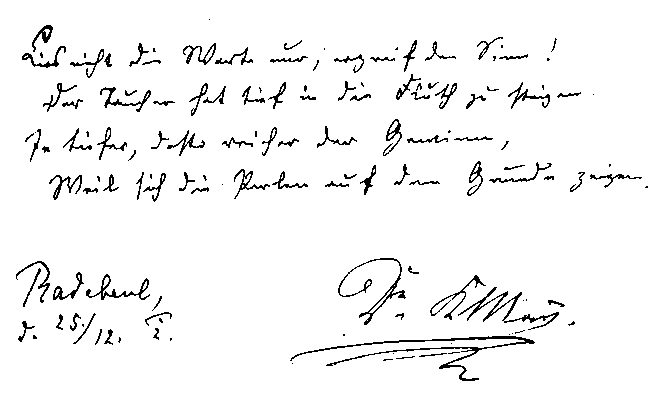 Lies nicht die Worte nur; ergreif den Sinn!
Der Taucher hat tief in die Fluth zu steigen.
Je tiefer, desto reicher der Gewinn,
Weil sich die Perlen auf dem Grunde zeigen.
Radebeul,
d. 25./12.
Dr. K May.